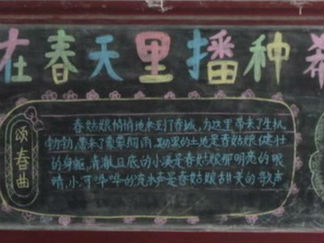 在春天里播种希
颂春曲
春姑娘悄悄地来到了春城,为这里带来了生机
勃勃,带来了蒙蒙细雨,勤黑的土地是春姑娘健壮
的身躯,青澈且底的小溪是春姑娘那明亮的眼
睛,小河哗哗的流水声是春姑娘甜美的歌声